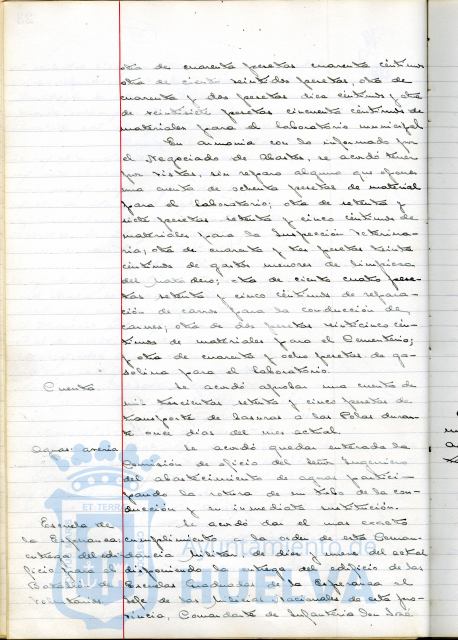 otra de cuarenta pesetas cuarenta céntimos
otra de ciento veintidos pesetas, otra de
cuarenta y dos pesetas diez céntimos y otra
de veintisiete pesetas cincuenta céntimos de
materiales para el laboratorio municipal
En armonia con lo informado por
el Negociado de Abastos, se acordó tener
por vistas, sin reparo alguno que oponer
una cuenta de ochenta pesetas de material
para el laboratorio; otra de setenta y
siete pesetas setenta y cinco céntimos de
materiales para la Inspección veterina-
ria; otra de cuarenta y tres pesetas treinta
céntimos de gastos menores de limpieza
del matadero; otra de ciento cuatro pese-
tas setenta y cinco céntimos de repara-
ción de carros para la conducción de
carnes; otra de dos pesetas veinticinco cén-
timos de materiales para el Cementerio;
y otra de cuarenta y ocho pesetas de ga-
solina para el laboratorio.
Cuenta. Se acordó aprobar una cuenta de
mil trescientas setenta y cinco pesetas de
transporte de basuras a las Polas duran-
te once dias del mes actual.
Aguas: averia Se acordó quedar enterada la
Comisión de oficio del Señor Ingeniero
del abastecimiento de aguas partici-
pando la rotura de un tubo de la con-
ducción y su inmediata sustitución.
Escuela de Se acordó dar el mas exacto
la Esperanza: cumplimiento a la orden de esta Coman-
entrega del edi- dancia Militar de dias y mes del actual
ficio para el disponiendo la entrega del edificio de las
Batallón de Escuelas Graduadas de la Esperanza al
voluntarios Jefe de las Milicias Nacionales de esta pro-
vincia, Comandante de Infanteria Don José
ET TERRA
Ayuntamiento de
HUELVA